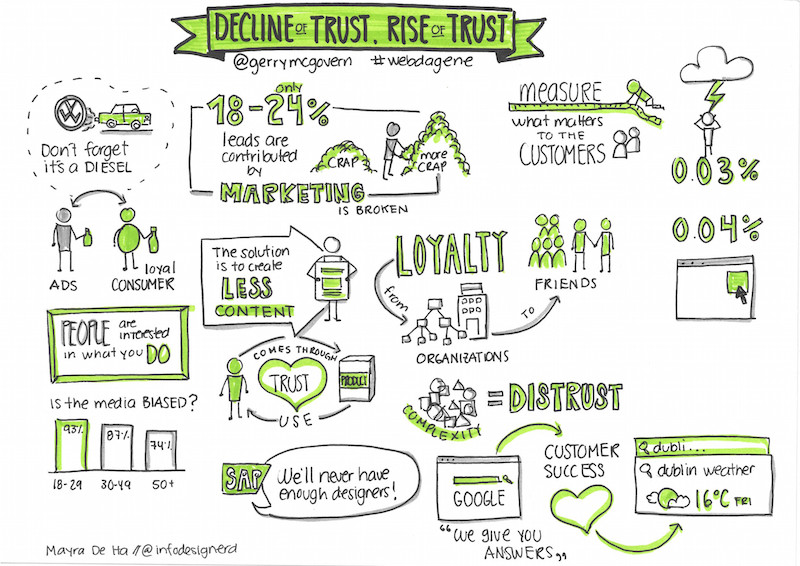 DECLINE OF TRUST, RISE OF TRUST
@gerrymcgovern #webdagene
VW
Don't forget
it's a DIESEL
ADS
loyal
CONSUMER
only
18-24%
leads are
contributed
by
MARKETING
IS BROKEN
CRAP
more
CRAP
measure
what matters
TO THE
CUSTOMERS
0.03%
0.04%
The solution
is to create
LESS
CONTENT
LOYALTY
from
ORGANIZATIONS
TO
FRIENDS
PEOPLE are
interested
in what you DO
COMES THROUGH
TRUST
PRODUCT
USE
Is the media BIASED?
93%
87%
74%
18-29 30-49 50+
COMPLEXITY
= DISTRUST
SAP
We'll never have
enough designers!
GOOGLE
"WE GIVE YOU
ANSWERS"
CUSTOMER
SUCCESS
dubli...
dublin weather
16°C FRI
Mayra De Ha // @infodesignerd